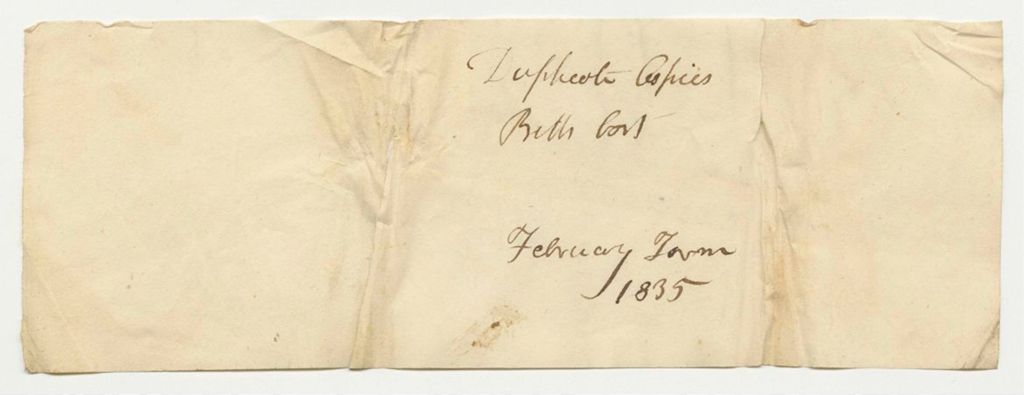 Duplicate Copies
Bills Cost
February Term
1835